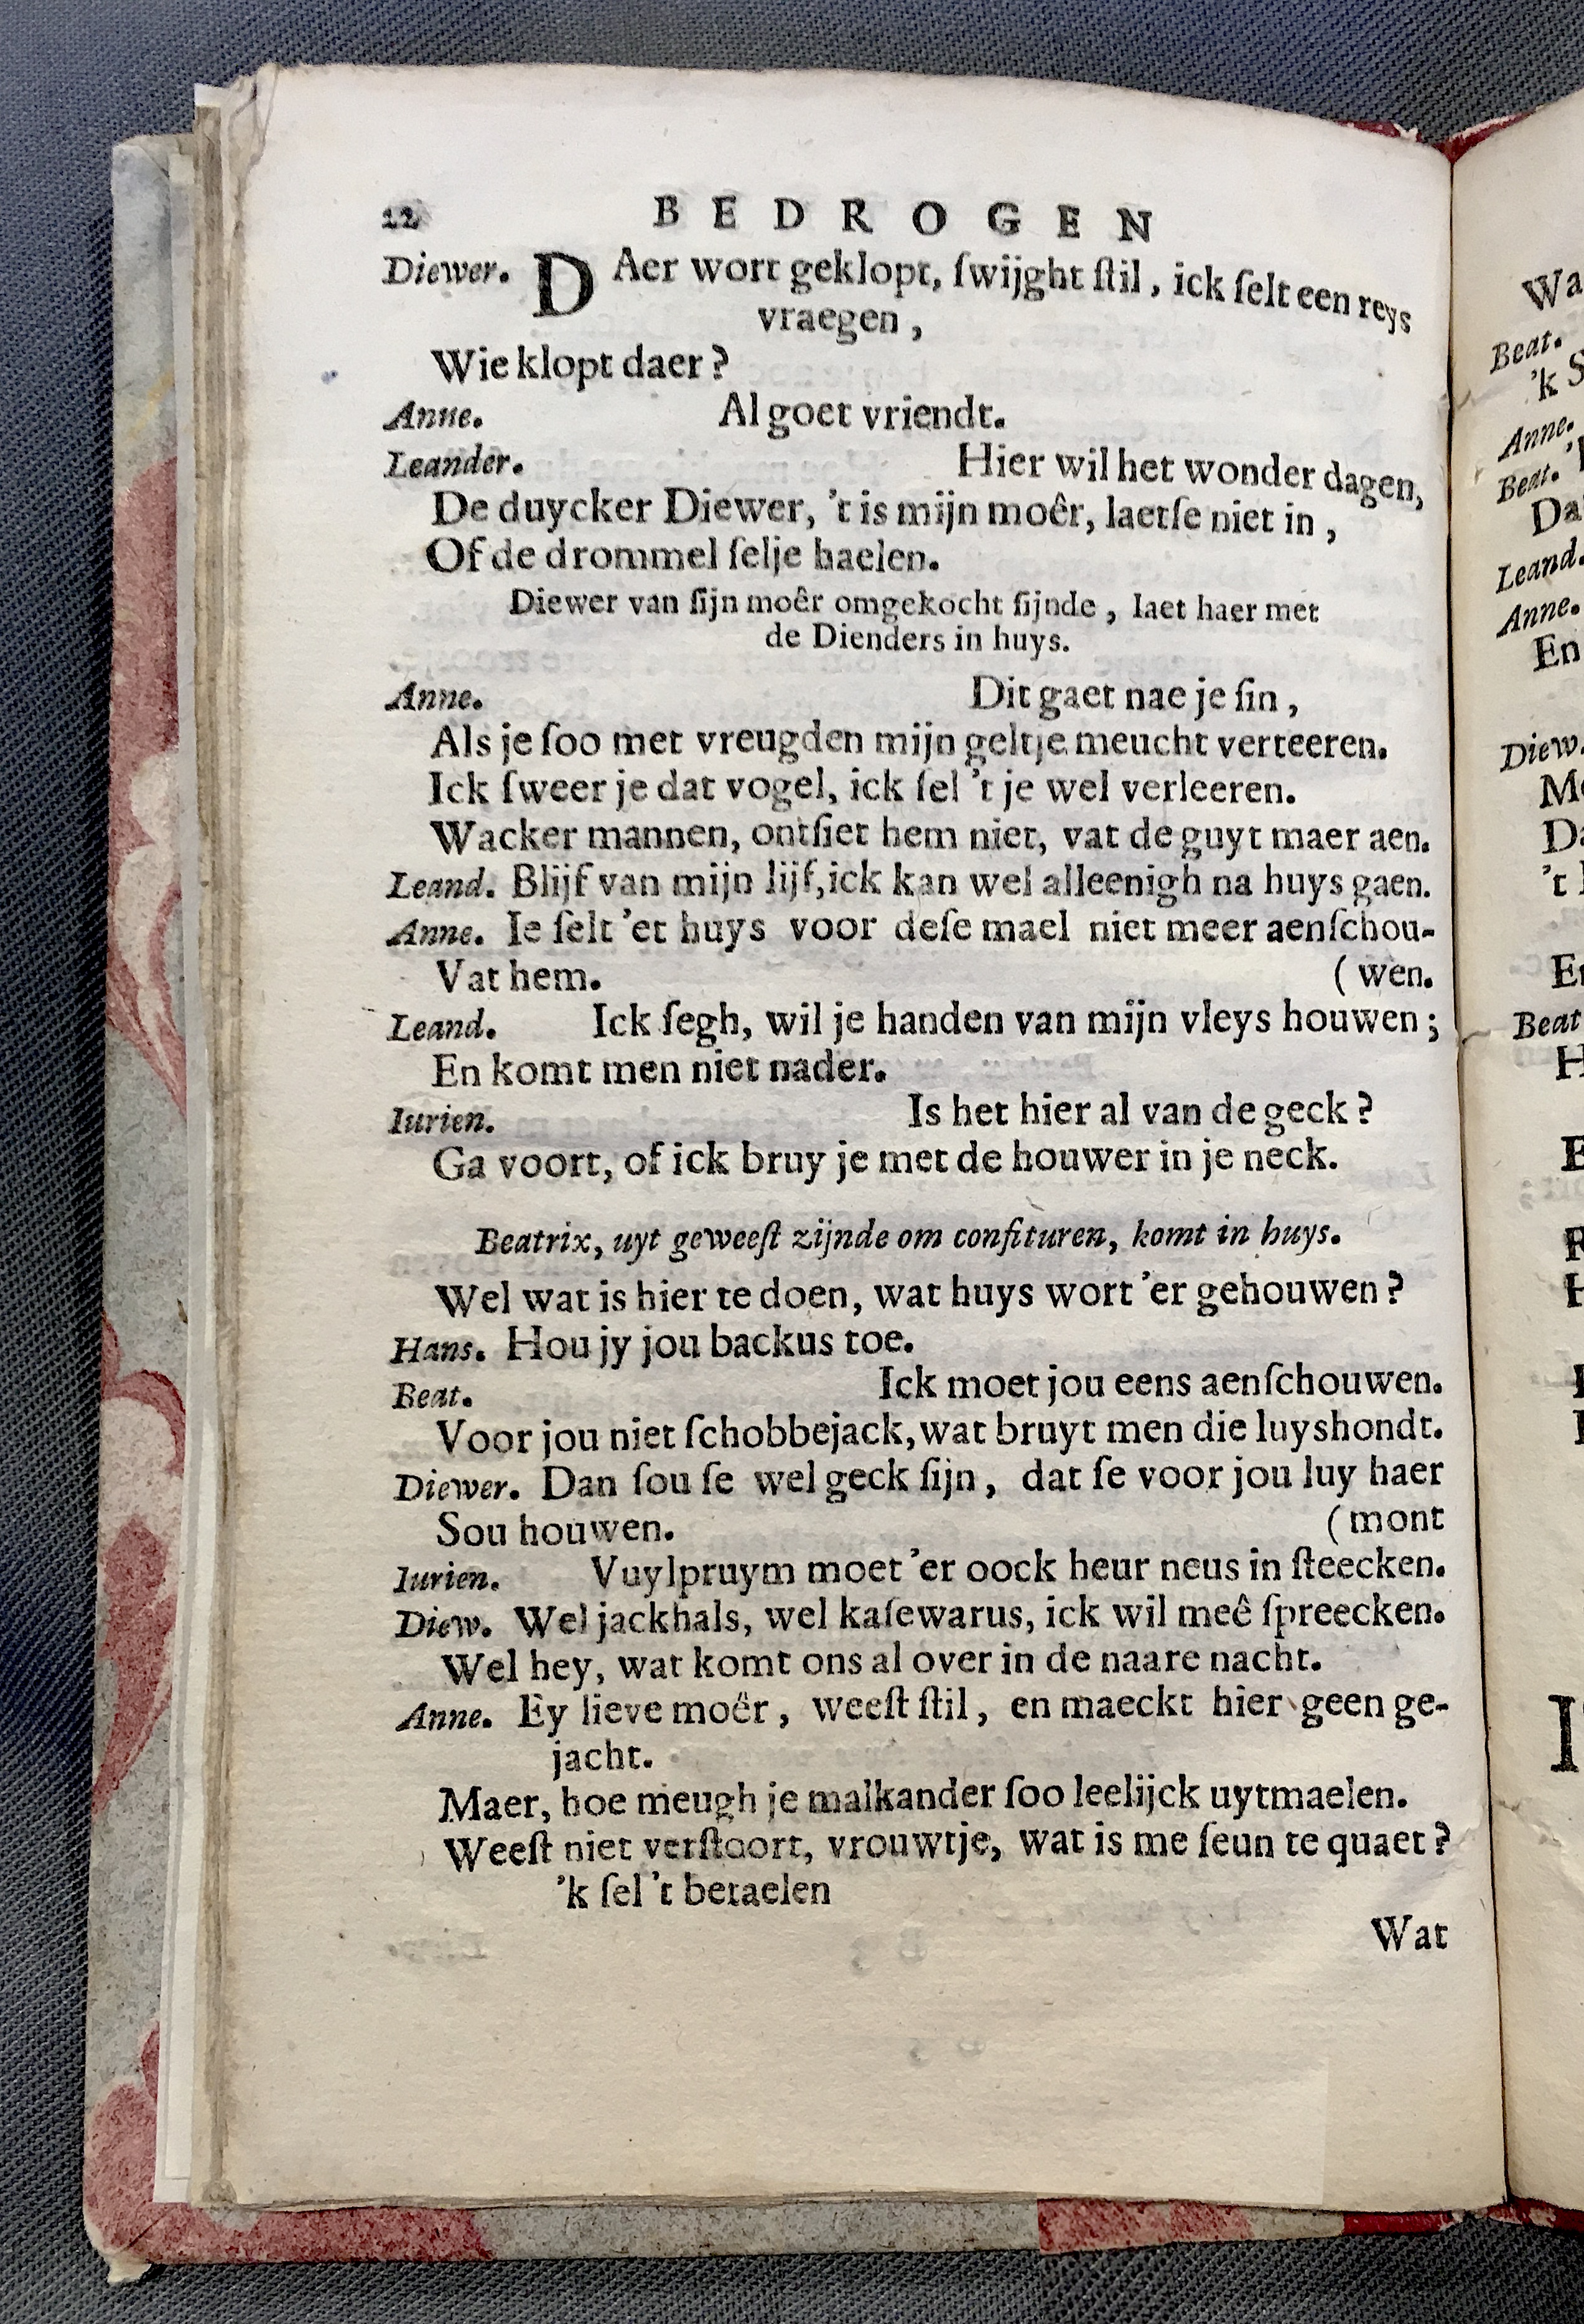 12 BEDROGEN
Diewer. DAer wort geklopt, ſwijght ſtil, ick ſelt een reys
vraegen,
Wie klopt daer?
Anne. Al goet vriendt.
Leander. Hier wil het wonder dagen,
De duycker Diewer, 't is mijn moêr, laetſe niet in,
Of de drommel ſelje haelen.
Diewer van ſijn moêr omgekocht ſijnde, laet haer met
de Dienders in huys.
Anne. Dit gaet nae je ſin,
Als je ſoo met vreugden mijn geltje meucht verteeren.
Ick ſweer je dat vogel, ick ſel 't je wel verleeren.
Wacker mannen, ontſiet hem niet, vat de guyt maer aen.
Leand. Blijf van mijn lijf, ick kan wel alleenigh na huys gaen.
Anne. Ie ſelt 'et huys voor deſe mael niet meer aenſchou-
Vat hem. (wen.
Leand. Ick ſegh, wil je handen van mijn vleys houwen;
En komt men niet nader.
Iurien. Is het hier al van de geck?
Ga voort, of ick bruy je met de houwer in je neck.
Beatrix, uyt geweeſt zijnde om confituren, komt in huys.
Wel wat is hier te doen, wat huys wort 'er gehouwen?
Hans. Hou jy jou backus toe.
Beat. Ick moet jou eens aenſchouwen.
Voor jou niet ſchobbejack, wat bruyt men die luyshondt.
Diewer. Dan ſou ſe wel geck ſijn, dat ſe voor jou luy haer
Sou houwen. (mont
Iurien. Vuylpruym moet 'er oock heur neus in ſteecken.
Diew. Wel jackhals, wel kaſewarus, ick wil meê ſpreecken.
Wel hey, wat komt ons al over in de naare nacht.
Anne. Ey lieve moêr, weeſt ſtil, en maeckt hier geen ge-
jacht.
Maer, hoe meugh je malkander ſoo leelijck uytmaelen.
Weeſt niet verſtoort, vrouwtje, wat is me ſeun te quaet?
'k ſel 't betaelen
Wat
Wa
Beat.
'k S
Anne.
Beat. '
Da
Leand.
Anne.
En
Diew.
Me
Da
't
En
Beat
H